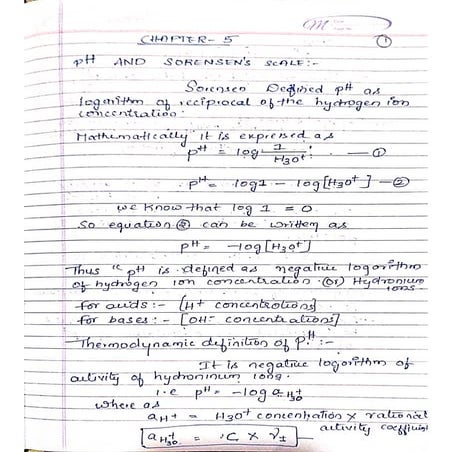 CHAPTER - 5
①
pH AND SORENSEN'S SCALE:-
Sorensen Defined pH as
logarithm of reciprocal of the hydrogen ion
concentration.
Mathematically it is expressed as
pH = log 1/H3O+ — ①
pH = log1 - log[H3O+] — ②
we know that log 1 = 0
So equation ② can be written as
pH = -log[H3O+]
Thus "pH is defined as negative logorithm
of hydrogen ion concentration (or) Hydronium
ions-
for acids:- [H+ concentrations]
for bases:- [OH- concentrations]
Thermodynamic definition of pH:-
It is negative logorithm of
activity of hydroninum ions.
i.e pH = -log aH3O+
where as
aH+ = H3O+ concentration × rational
activity coefficient
aH3O+ = C × γ±